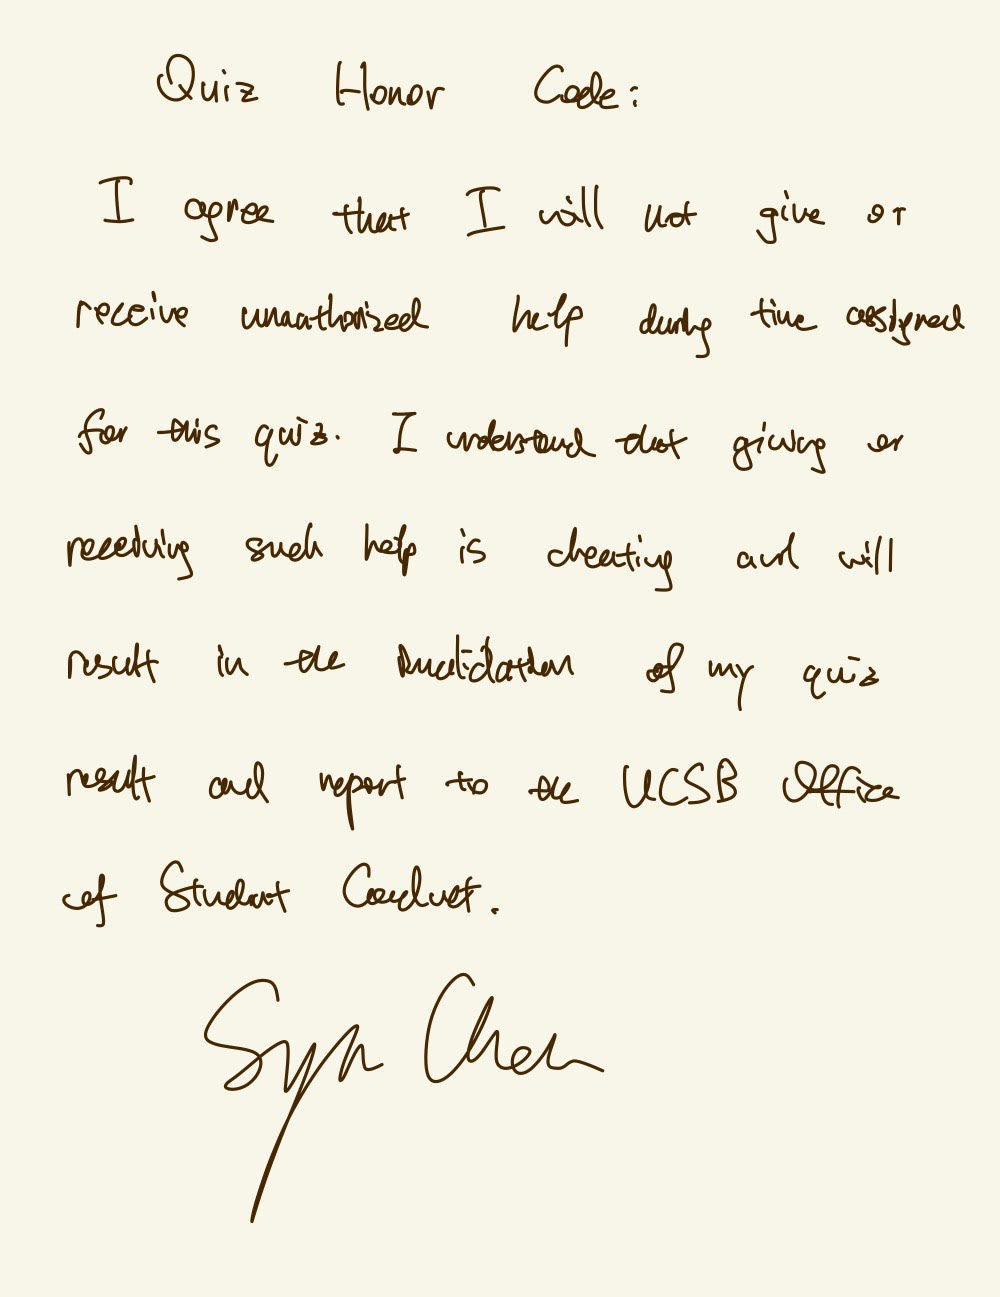 Quiz Honor Code:
I agree that I will not give or
receive unauthorized help during time assigned
for this quiz. I understand that giving or
receiving such help is cheating and will
result in the invalidation of my quiz
result and report to the UCSB Office
of Student Conduct.
Chen